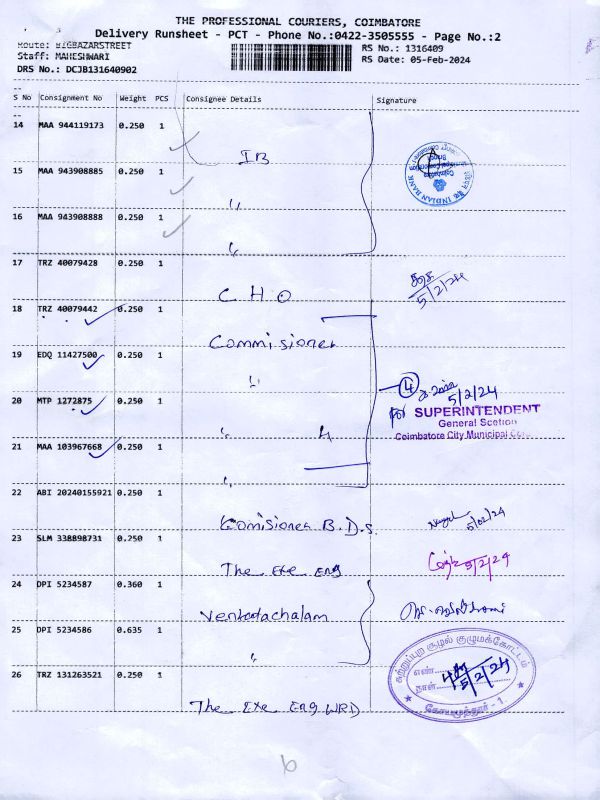 THE PROFESSIONAL COURIERS, COIMBATORE
Delivery Runsheet - PCT - Phone No.:0422-3505555 - Page No.:2
Route: BIGBAZARSTREET
RS No.: 1316409
Staff: MAHESHWARI
RS Date: 05-Feb-2024
DRS No.: DCJB131640902
S No Consignment No Weight PCS Consignee Details Signature
14 MAA 944119173 0.250 1
IB
15 MAA 943908885 0.250 1
"
INDIAN BANK
16 MAA 943908888 0.250 1
"
17 TRZ 40079428 0.250 1
C H O
5/2/24
18 TRZ 40079442 0.250 1
Commisioner
19 EDQ 11427500 0.250 1
"
4
5/2/24
20 MTP 1272875 0.250 1
" 4
for SUPERINTENDENT
General Scetion
Coimbatore City Municipal
21 MAA 103967668 0.250 1
"
22 ABI 20240155921 0.250 1
Comisioner B.D.S.
5/02/24
23 SLM 338898731 0.250 1
The Exe Eng
5/2/24
24 DPI 5234587 0.360 1
Venkadachalam
25 DPI 5234586 0.635 1
"
சுற்றுப்புற சூழல் குழுமக்கோட்டம்
எண்
நாள்
5/2/24
கோயமுத்தூர் - 1
26 TRZ 131263521 0.250 1
The Exe Eng WRD
6